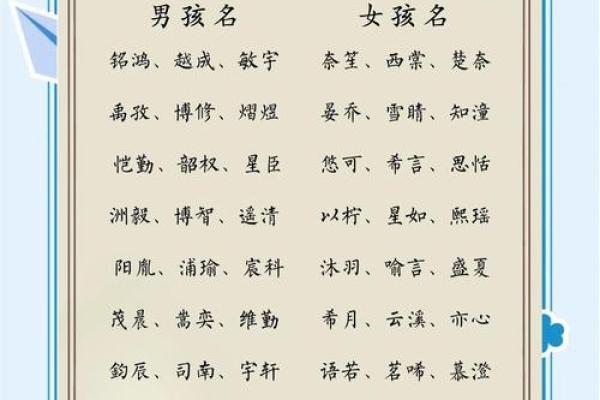 男孩名 女孩名
铭鸿、越成、敏宇 奈笙、西棠、楚奈
禹孜、博修、熠煜 晏乔、雪晴、知潼
恺勤、韶权、星臣 悠可、希言、思恬
洲毅、博智、遥清 以柠、星如、熙瑶
阳胤、浦瑜、宸科 沐羽、喻言、盛夏
茂晨、嵩奕、维勤 希月、云溪、亦心
鈞辰、司南、宇轩 语若、茗唏、慕澄